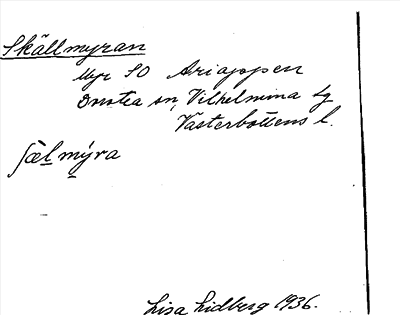 Skällmyran
Myr SO Ariaggpen
Dorotea sn, Vilhelmina tg
Västerbottens l.
ʃæl mýra
Lisa Lidberg 1936.